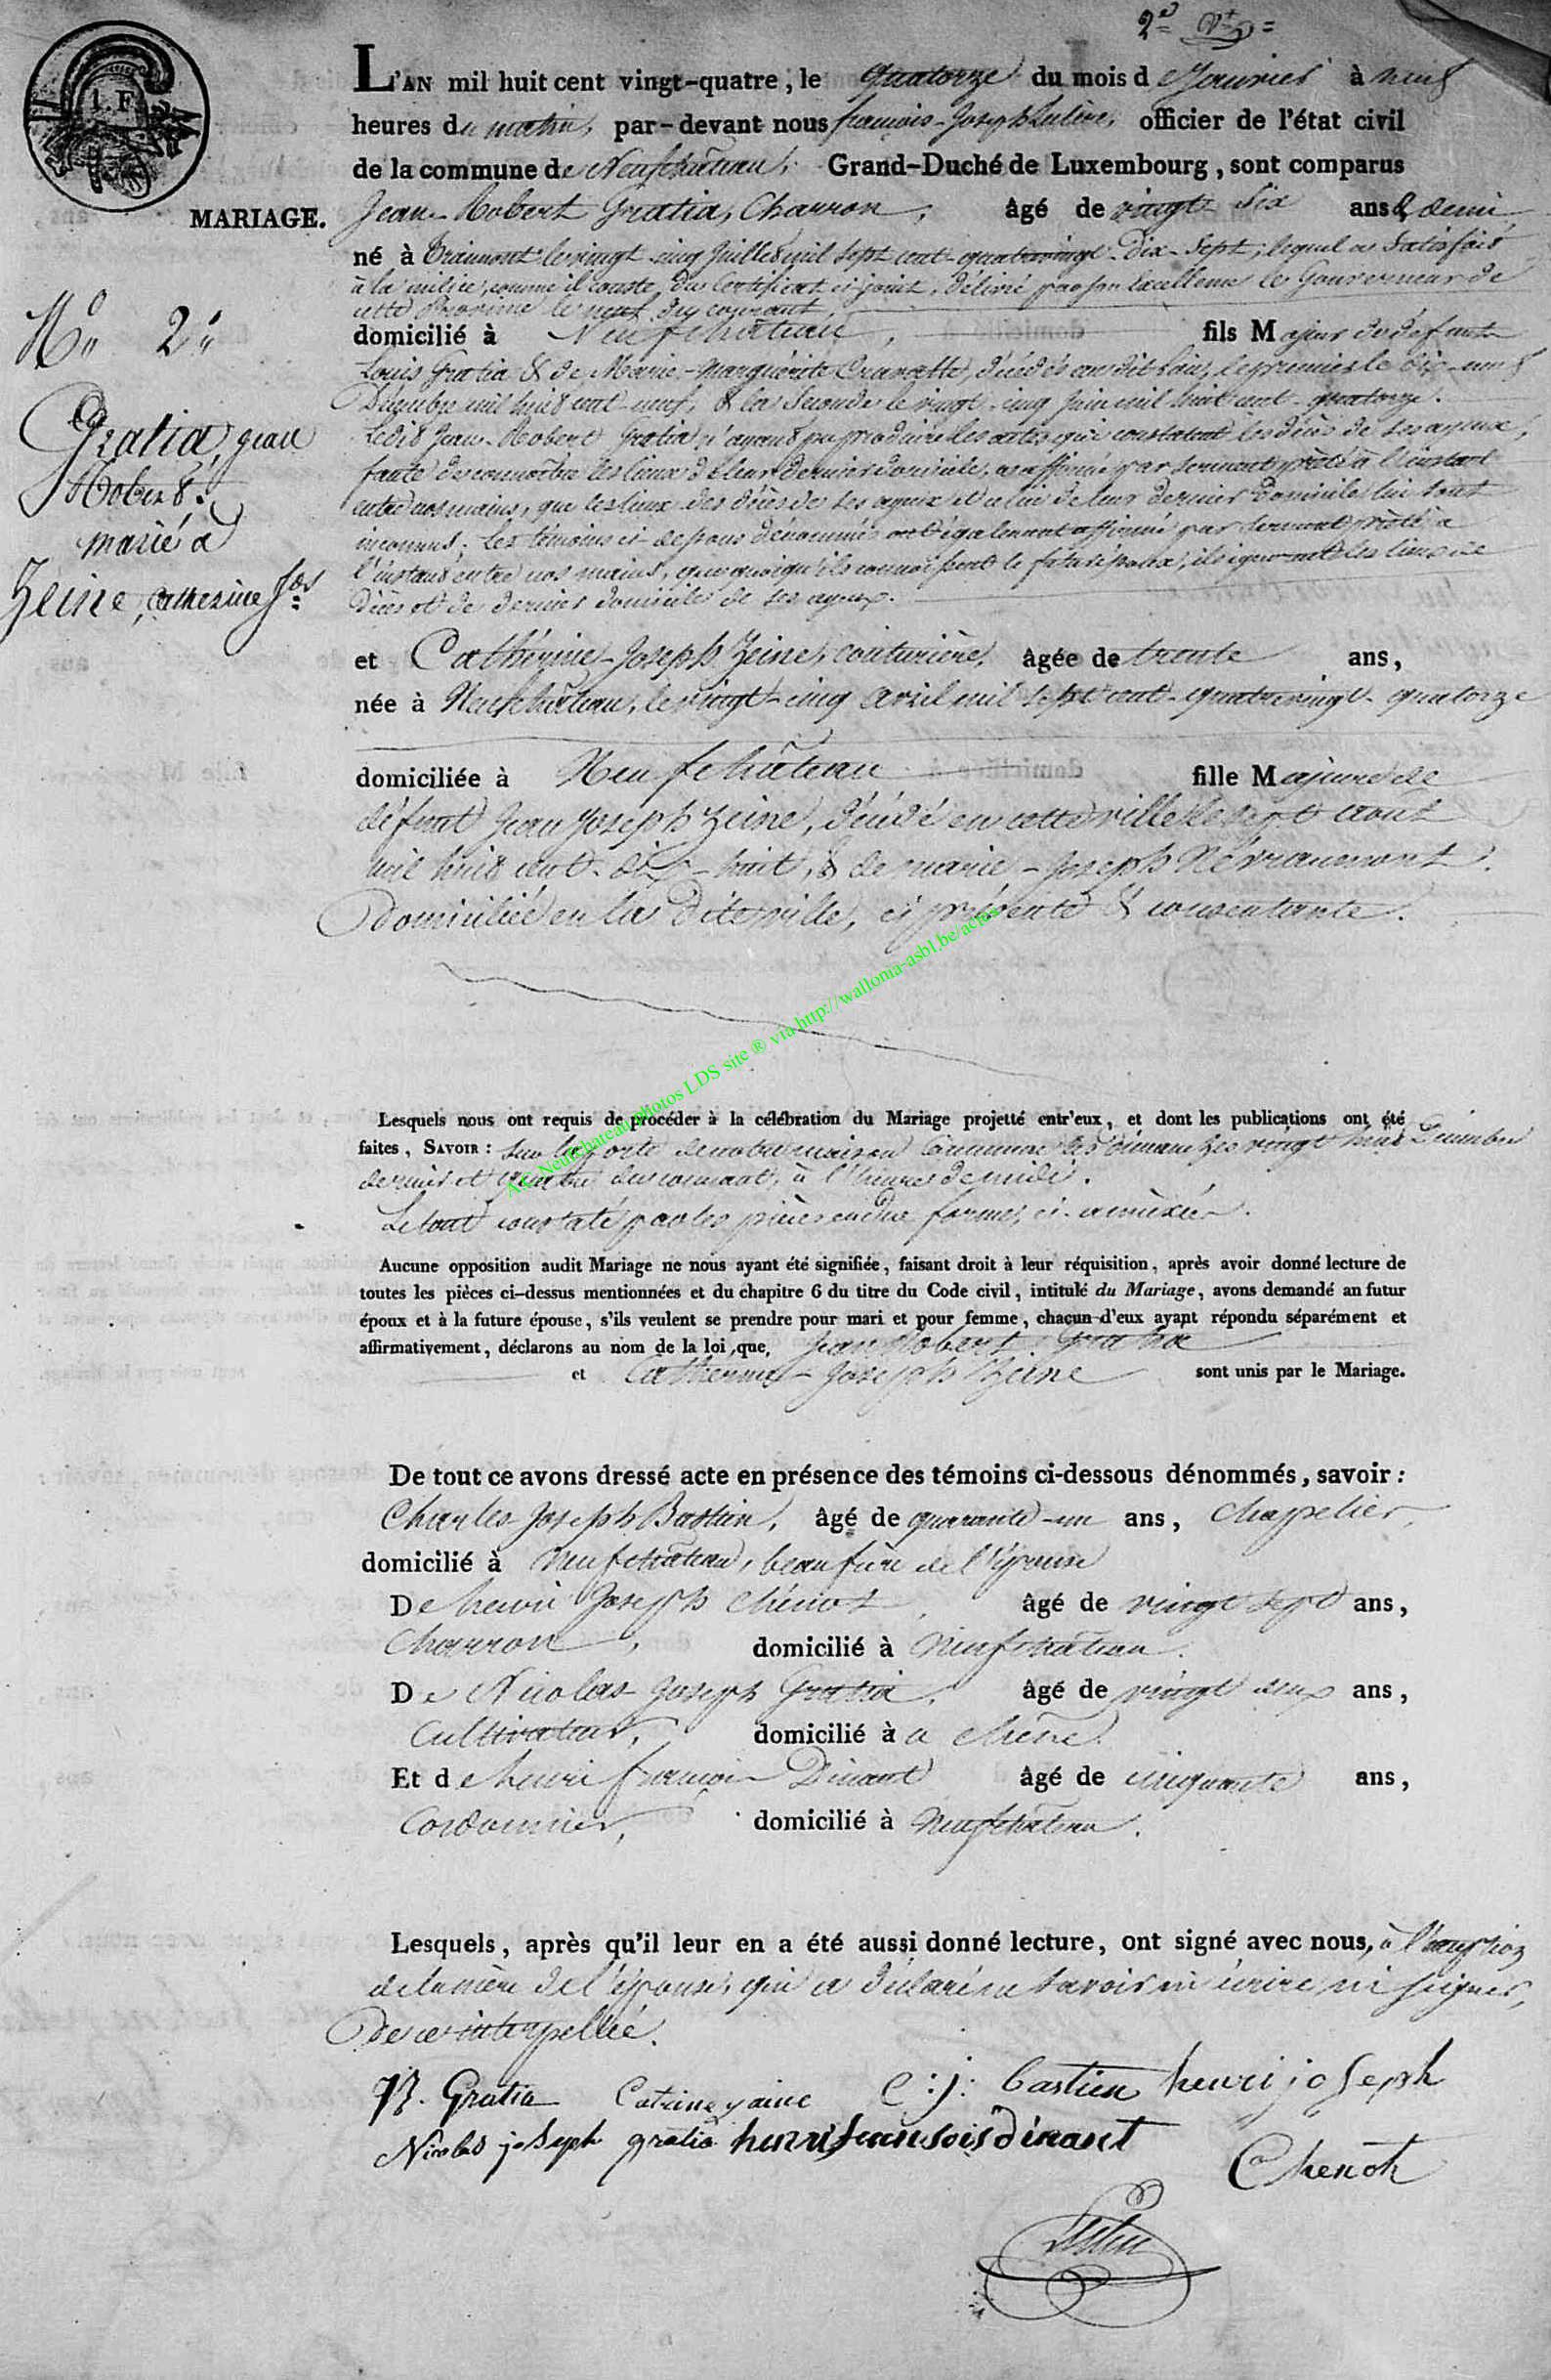 2e
L'AN mil huit cent vingt-quatre, le quatorze du mois de Janvier à neuf
heures du matin, par-devant nous françois-Joseph officier de l'état civil
de la commune de Neufchâteau, Grand-Duché de Luxembourg, sont comparus
MARIAGE.
Jean-Robert Gratia, Charron, âgé de vingt-six ans & demi
né à le vingt-cinq Juillet mil sept cent quatrevingt-Dix-Sept, lequel a satisfait
à la milice, comme il conste du Certificat ci-joint, délivré par son Excellence le Gouverneur de
cette Province le neuf du courant,
domicilié à Neufchâteau, fils Majeur de défunts
Louis Gratia & de Marie-Marguérite décédés au dit lieu, le premier le dix-neuf
Décembre mil huit cent-neuf, & la Seconde le vingt-cinq Juin mil huit cent-quatorze.
Ledit Jean-Robert Gratia n'ayant pu produire les actes qui constatent les décès de ses ayeux,
faute de connoître les lieux de leur dernier domicile, a affirmé par serment prêté à l'instant
entre nos mains, que les lieux des décès de ses ayeux et celui de leur dernier Domicile lui sont
inconnus; Les témoins ci-dessous dénommés ont également affirmé par serment prêté à
l'instant entre nos mains, que quoiqu'ils connoissent le futur époux, ils ignorent les lieux de
Décès et de dernier domicile de ses ayeux.
No 2
Gratia, jean
Robert
marié à
Zeine, catherine Jos
et Cathérine-Joseph Zeine, couturière, âgée de trente ans,
née à Neufchâteau, le vingt-cinq avril mil sept cent-quatrevingt-quatorze
domiciliée à Neufchâteau fille Majeure de
défunt Jean Joseph Zeine, décédé en cette ville le sept aout
mil huit cent-dix-huit, & de marie-Joseph
domiciliée en la dite ville, ci présente & consentante.
A.C. Neufchateau photos LDS site ® via http://wallonia-asbl.be/actes
Lesquels nous ont requis de procéder à la célébration du Mariage projetté entr'eux, et dont les publications ont été
faites, SAVOIR : sur la porte de notre maison Commune les dimanches vingt huit Décembre
dernier et quatre du courant, à l'heure de midi.
Le tout constaté par les pièces en due forme, ci-annéxées.
Aucune opposition audit Mariage ne nous ayant été signifiée, faisant droit à leur réquisition, après avoir donné lecture de
toutes les pièces ci-dessus mentionnées et du chapitre 6 du titre du Code civil, intitulé du Mariage, avons demandé au futur
époux et à la future épouse, s'ils veulent se prendre pour mari et pour femme, chacun-d'eux ayant répondu séparément et
affirmativement, déclarons au nom de la loi, que, Jean Robert Gratia
et Catherine-Joseph Zeine sont unis par le Mariage.
De tout ce avons dressé acte en présence des témoins ci-dessous dénommés, savoir :
Charles Joseph Bastien, âgé de quarante-un ans, chappelier,
domicilié à Neufchâteau, beau frère de l'épouse
De henri Joseph Chénot, âgé de vingt sept ans,
Charron, domicilié à Neufchâteau.
De Nicolas Joseph Gratia, âgé de vingt deux ans,
Cultivateur, domicilié à a chêne
Et de henri françois Dinant âgé de cinquante ans,
Cordonnier, domicilié à Neufchâteau.
Lesquels, après qu'il leur en a été aussi donné lecture, ont signé avec nous, à l'exception
de la mère de l'épouse, qui a déclaré ne savoir ni écrire ni signer,
de ce interpellée.
Gratia Catrine yaine C: j: bastien henri joseph
Nicolas joseph gratia henri fransois dinant
Chenot